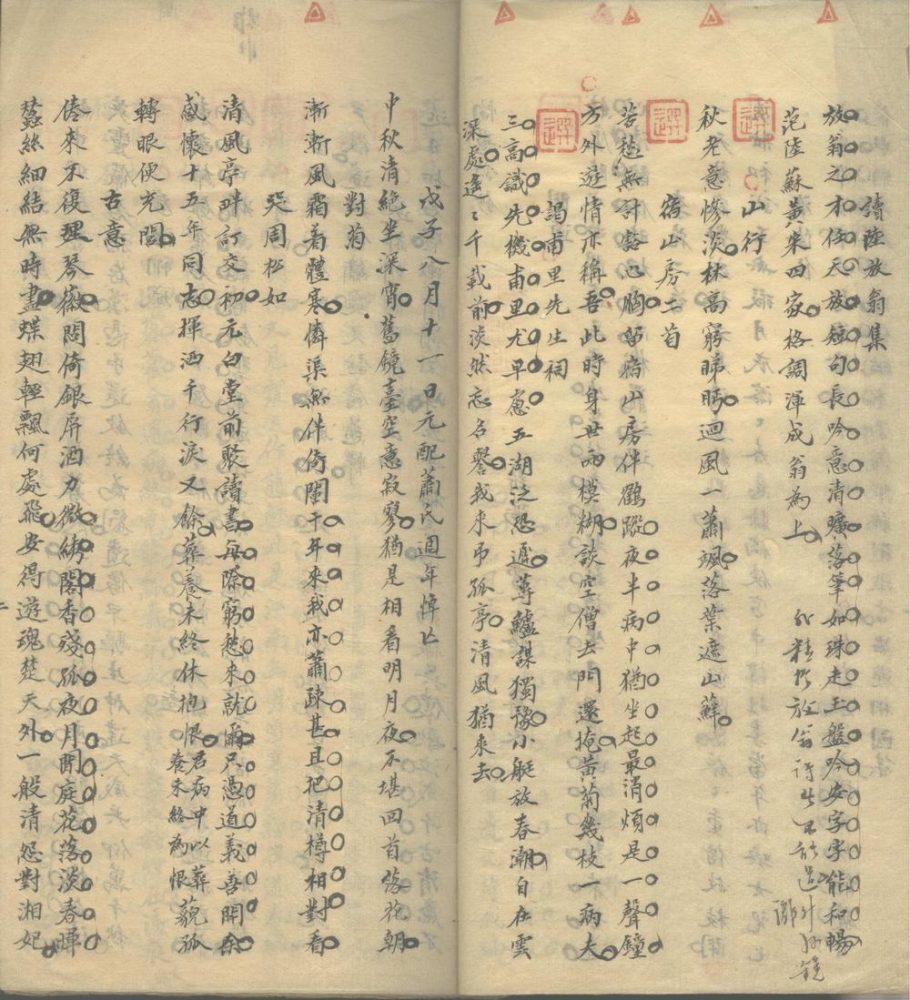 讀陸放翁集
放翁之才任天放短句長吟意清曠落筆如珠走玉盤吟安字字能和暢
范陸蘇黃朱四家格調渾成翁為上
非精於放翁詩者不能道
山行
秋老意慘淡林高窮睇眄迴風一蕭颯落葉遮山蘚
宿山房二首
苦愁無計豁心胸留宿山房伴鶴蹤夜半病中猶坐起最消煩是一聲鐘
方外遊情亦稱吾此時身世兩模糊談空僧去門還掩黃菊幾枝一病夫
謁甫里先生祠
三高識先機甫里尤早慮五湖泛恐遲蓴鱸謀獨豫小艇放春潮自在雲
深處遙遙千載前淡然忘名譽我來弔孤亭清風猶來去
選
選
選
戊子八月十一日元配蕭氏週年悼亡
中秋清絕坐深宵舊鏡臺空意寂寥猶是相看明月夜不堪回首傍花朝
對菊
漸漸風霜着體寒儕渠無伴倚闌干年來我亦蕭疎甚且把清樽相對看
哭周松如
清風亭畔訂交初元白堂前聚讀書每際窮愁來就爾只憑道義善開余
感懷十五年同志揮洒千行淚又餘葬養未終休抱恨君病中以葬藐孤
養未終為恨
轉眼便充閭
古意
倦來不復理琴徽悶倚銀屏酒力微綉閣香殘孤夜月閒庭花落淡春暉
蠶絲細結無時盡蝶翅輕飄何處飛安得遊魂楚天外一般清怨對湘妃